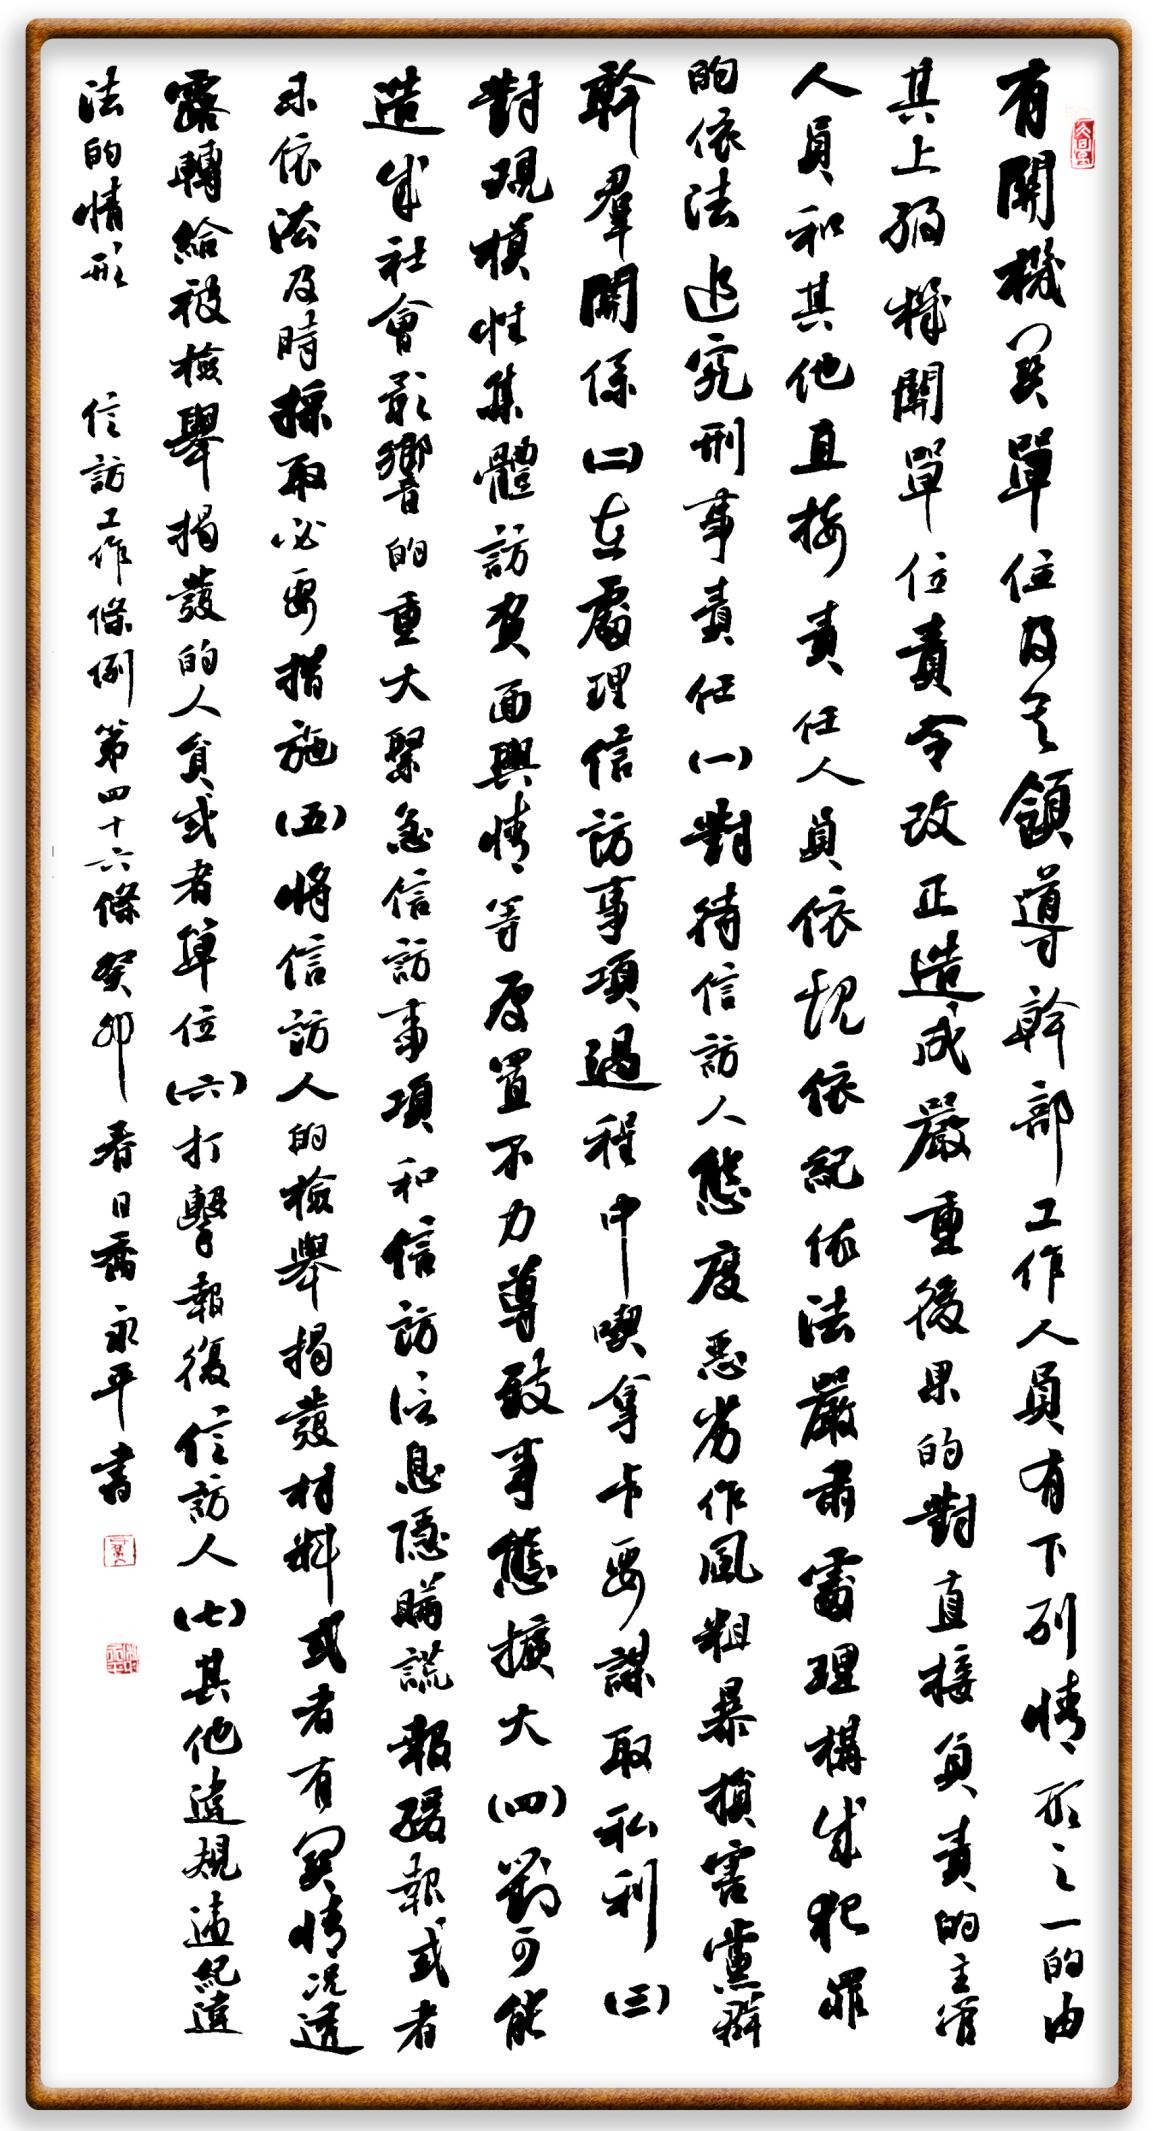 有關機關單位及其領導幹部工作人員有下列情形之一的由
其上級機關單位責令改正造成嚴重後果的對直接負責的主管
人員和其他直接責任人員依規依紀依法嚴肅處理構成犯罪
的依法追究刑事責任(一)對待信訪人態度惡劣作風粗暴損害黨群
幹群關係(二)在處理信訪事項過程中喫拿卡要謀取私利(三)
對規模性集體訪負面輿情等處置不力導致事態擴大(四)對可能
造成社會影響的重大緊急信訪事項和信訪信息隱瞞謊報緩報或者
未依法及時採取必要措施(五)將信訪人的檢舉揭發材料或者有關情況透
露轉給被檢舉揭發的人員或者單位(六)打擊報復信訪人(七)其他違規違紀違
法的情形 信訪工作條例第四十六條癸卯春日喬永平書